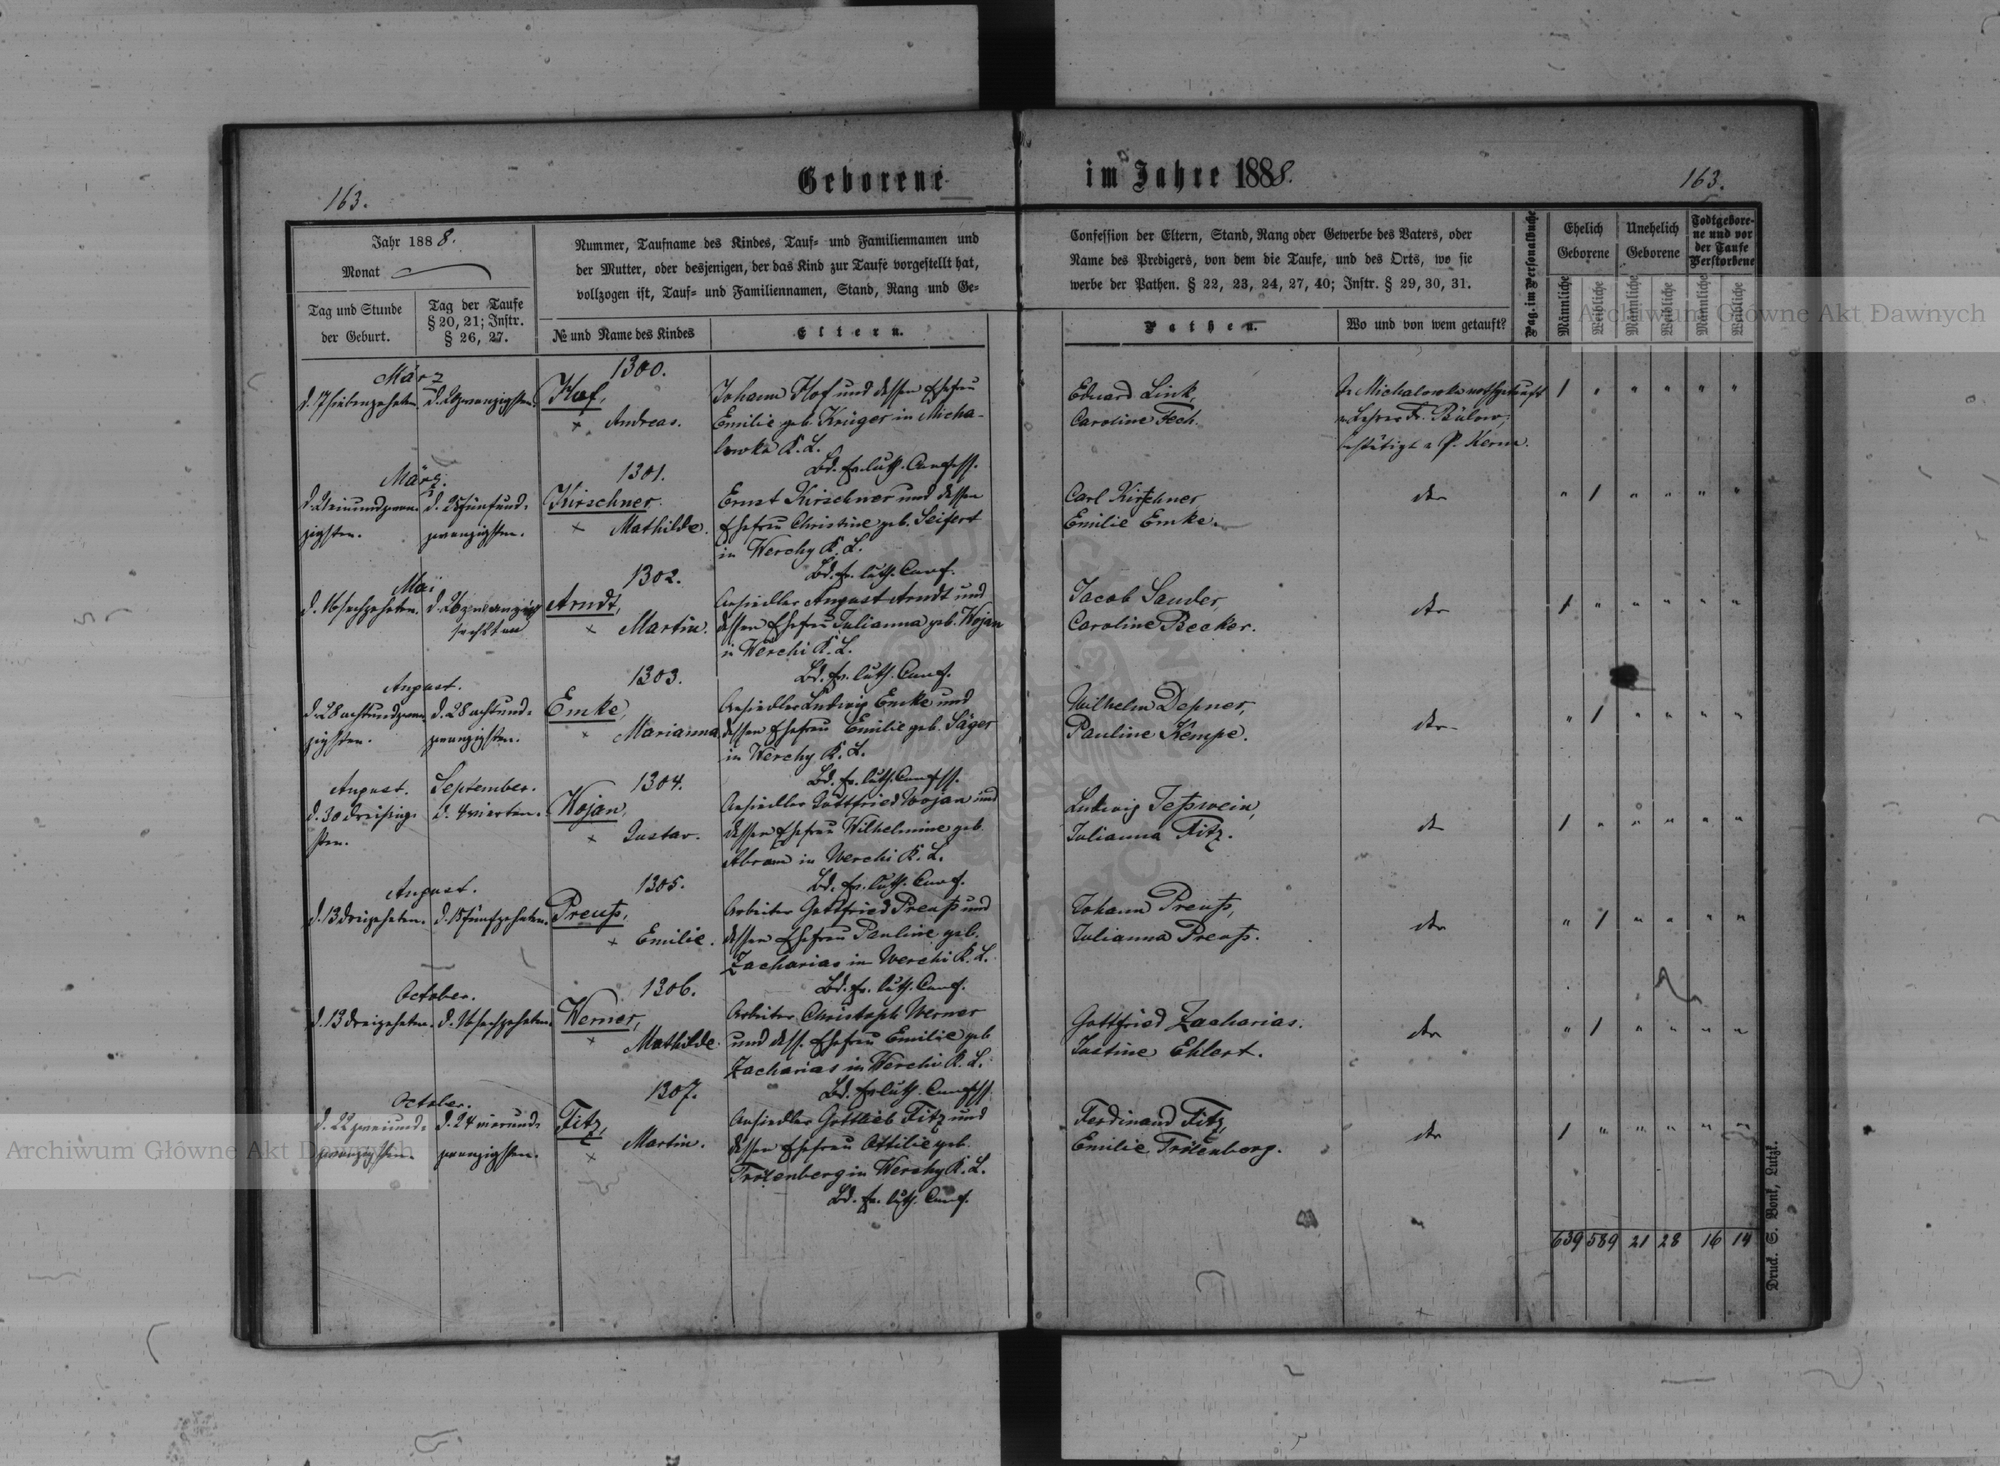 Geborene im Jahre 1888.
163.
163.
Jahr 1888.
Monat
Tag und Stunde
der Geburt.
Tag der Taufe
§ 20, 21; Instr.
§ 26, 27.
Nummer, Taufname des Kindes, Tauf- und Familiennamen und
der Mutter, oder desjenigen, der das Kind zur Taufe vorgestellt hat,
vollzogen ist, Tauf- und Familiennamen, Stand, Rang und Ge-
№ und Name des Kindes
Eltern.
Confession der Eltern, Stand, Rang oder Gewerbe des Vaters, oder
Name des Predigers, von dem die Taufe, und des Orts, wo sie
werbe der Pathen. § 22, 23, 24, 27, 40; Instr. § 29, 30, 31.
Pathen.
Wo und von wem getauft?
Pag. im Personalbuche
Ehelich
Geborene
Unehelich
Geborene
Todtgebore-
ne und vor
der Taufe
Verstorbene
Männliche
Weibliche
Männliche
Weibliche
Männliche
Weibliche
März
1300.
d. 17 siebenzehnten
d. 20 zwanzigsten.
Hof,
Andreas.
Johann Hof und dessen Ehefrau
Emilie geb. Krüger in Micha-
lowka K. L.
Bd. ev. luth. Confess.
Eduard Link,
Caroline Fech.
In Michalowka nothgetauft
v. Lehrer Fr. Bülow;
bestätigt v. P. Kerm.
März.
1301.
d. 21 einundzwan-
zigsten.
d. 25 fünfund-
zwanzigsten.
Kirschner
Mathilde.
Ernst Kirschner und dessen
Ehefrau Christine geb. Seifert
in Werchy K. L.
Bd. ev. luth. Conf.
Carl Kirschner
Emilie Emke.
dto
Mai
1302.
d. 16 sechzehnten.
Arndt,
Martin.
Ansiedler August Arndt und
dessen Ehefrau Julianna geb. Wojan
in Werchi K. L.
Bd. ev. luth. Conf.
Jacob Sander,
Caroline Becker.
dto
August.
1303.
d. 28 achtundzwan-
zigsten.
d. 28 achtund-
zwanzigsten.
Emke,
Marianna
Ansiedler Ludwig Emke und
dessen Ehefrau Emilie geb. Säger
in Werchy K. L.
Bd. ev. luth. Confess.
Wilhelm Depner,
Pauline Kempe.
dto
August. September.
1304.
d. 30 dreißig-
sten.
d. 4 vierten.
Wojan,
Gustav.
Ansiedler Gottfried Wojan und
dessen Ehefrau Wilhelmine geb.
Abram in Werchi K. L.
Bd. ev. luth. Conf.
Ludwig Teßwein,
Julianna Fitz.
dto
August.
1305.
d. 13 dreizehnten.
d. 15 fünfzehnten.
Preuß,
Emilie.
Arbeiter Gottfried Preuß und
dessen Ehefrau Pauline geb.
Zacharias in Werchi K. L.
Bd. ev. luth. Conf.
Johann Preuß,
Julianna Preuß.
dto
October.
1306.
d. 13 dreizehnten.
d. 16 sechzehnten.
Werner,
Mathilde
Arbeiter Christoph Werner
und dess. Ehefrau Emilie geb
Zacharias in Werchi K. L.
Bd. ev. luth. Confess
Gottfried Zacharias.
Justine Ehlert.
dto
October.
1307.
d. 22 zweiund-
zwanzigsten.
d. 24 vierund-
zwanzigsten.
Fitz,
Martin.
Ansiedler Gottlieb Fitz und
dessen Ehefrau Ottilie geb.
in Werchy K. L.
Bd. ev. luth. Conf.
Ferdinand Fitz,
Emilie
dto
639 589 21 28 16 14
Druck. S. Bonk, Lutzk.
Archiwum Główne Akt Dawnych
Archiwum Główne Akt Dawnych